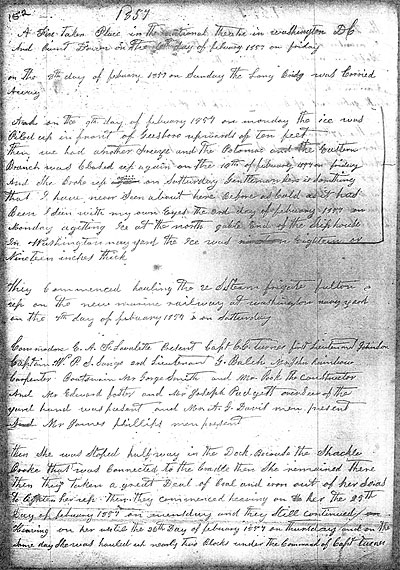 182
1857
A Fire Taken Place in the national theatre in washington DC
And burnt Down on the 6th day of febuary 1857 on friday
on the 8th day of febuary 1857 on Sunday the Long Bridg was Carried
Away
And on the 9th day of febuary 1857 on monday the ice was
Piled up in front of Geesboro upwards of ten feet
then we had another freeze and the Potomac and the Eastern
Branch was Closed up again on the 10th of febuary
And she Broke up on Satturday Gentlemen here is somthing
that I have never Seen about here Before as Cold as it had
Been I Seen with my own Eyes the 3rd day of febuary 1857 on
Monday agetting Ice at the north gable End of the Ship house
In Washington navy yard the Ice was Eighteen or
Nineteen inches thick
they Commenced hauling the U S Steam frigate fulton
up on the new marine railway at washington navy yard
on the day of febuary 1857 on Satturday
Comodore E. A. F. Lavalette Present Capt CC turner Lieutenant Johnson
Captain and Lieutenant G Balch
Carpenter Boatswain Mr George Smith and Mr Pook the Constructor
And Mr Edward foster and Mr Joseph Padgett overseer of the
yard hand was present and G Davis men present
And Mr James phillips men present
then She was Stoped halfway in the Dock Besids the Shackle
Broke that was Connected to the Cradle then She remained there
then they taken a great Deal of Coal and iron out of her
to Lighten her up then they commenced heaving on her the 25th
Day of febuary 1857 on wensday and they Still continued
Heaving on her until the 26th Day of febuary 1857 on thursday and on the
Same day She was hauled up nearly two Blocks under the Command of Capt turner